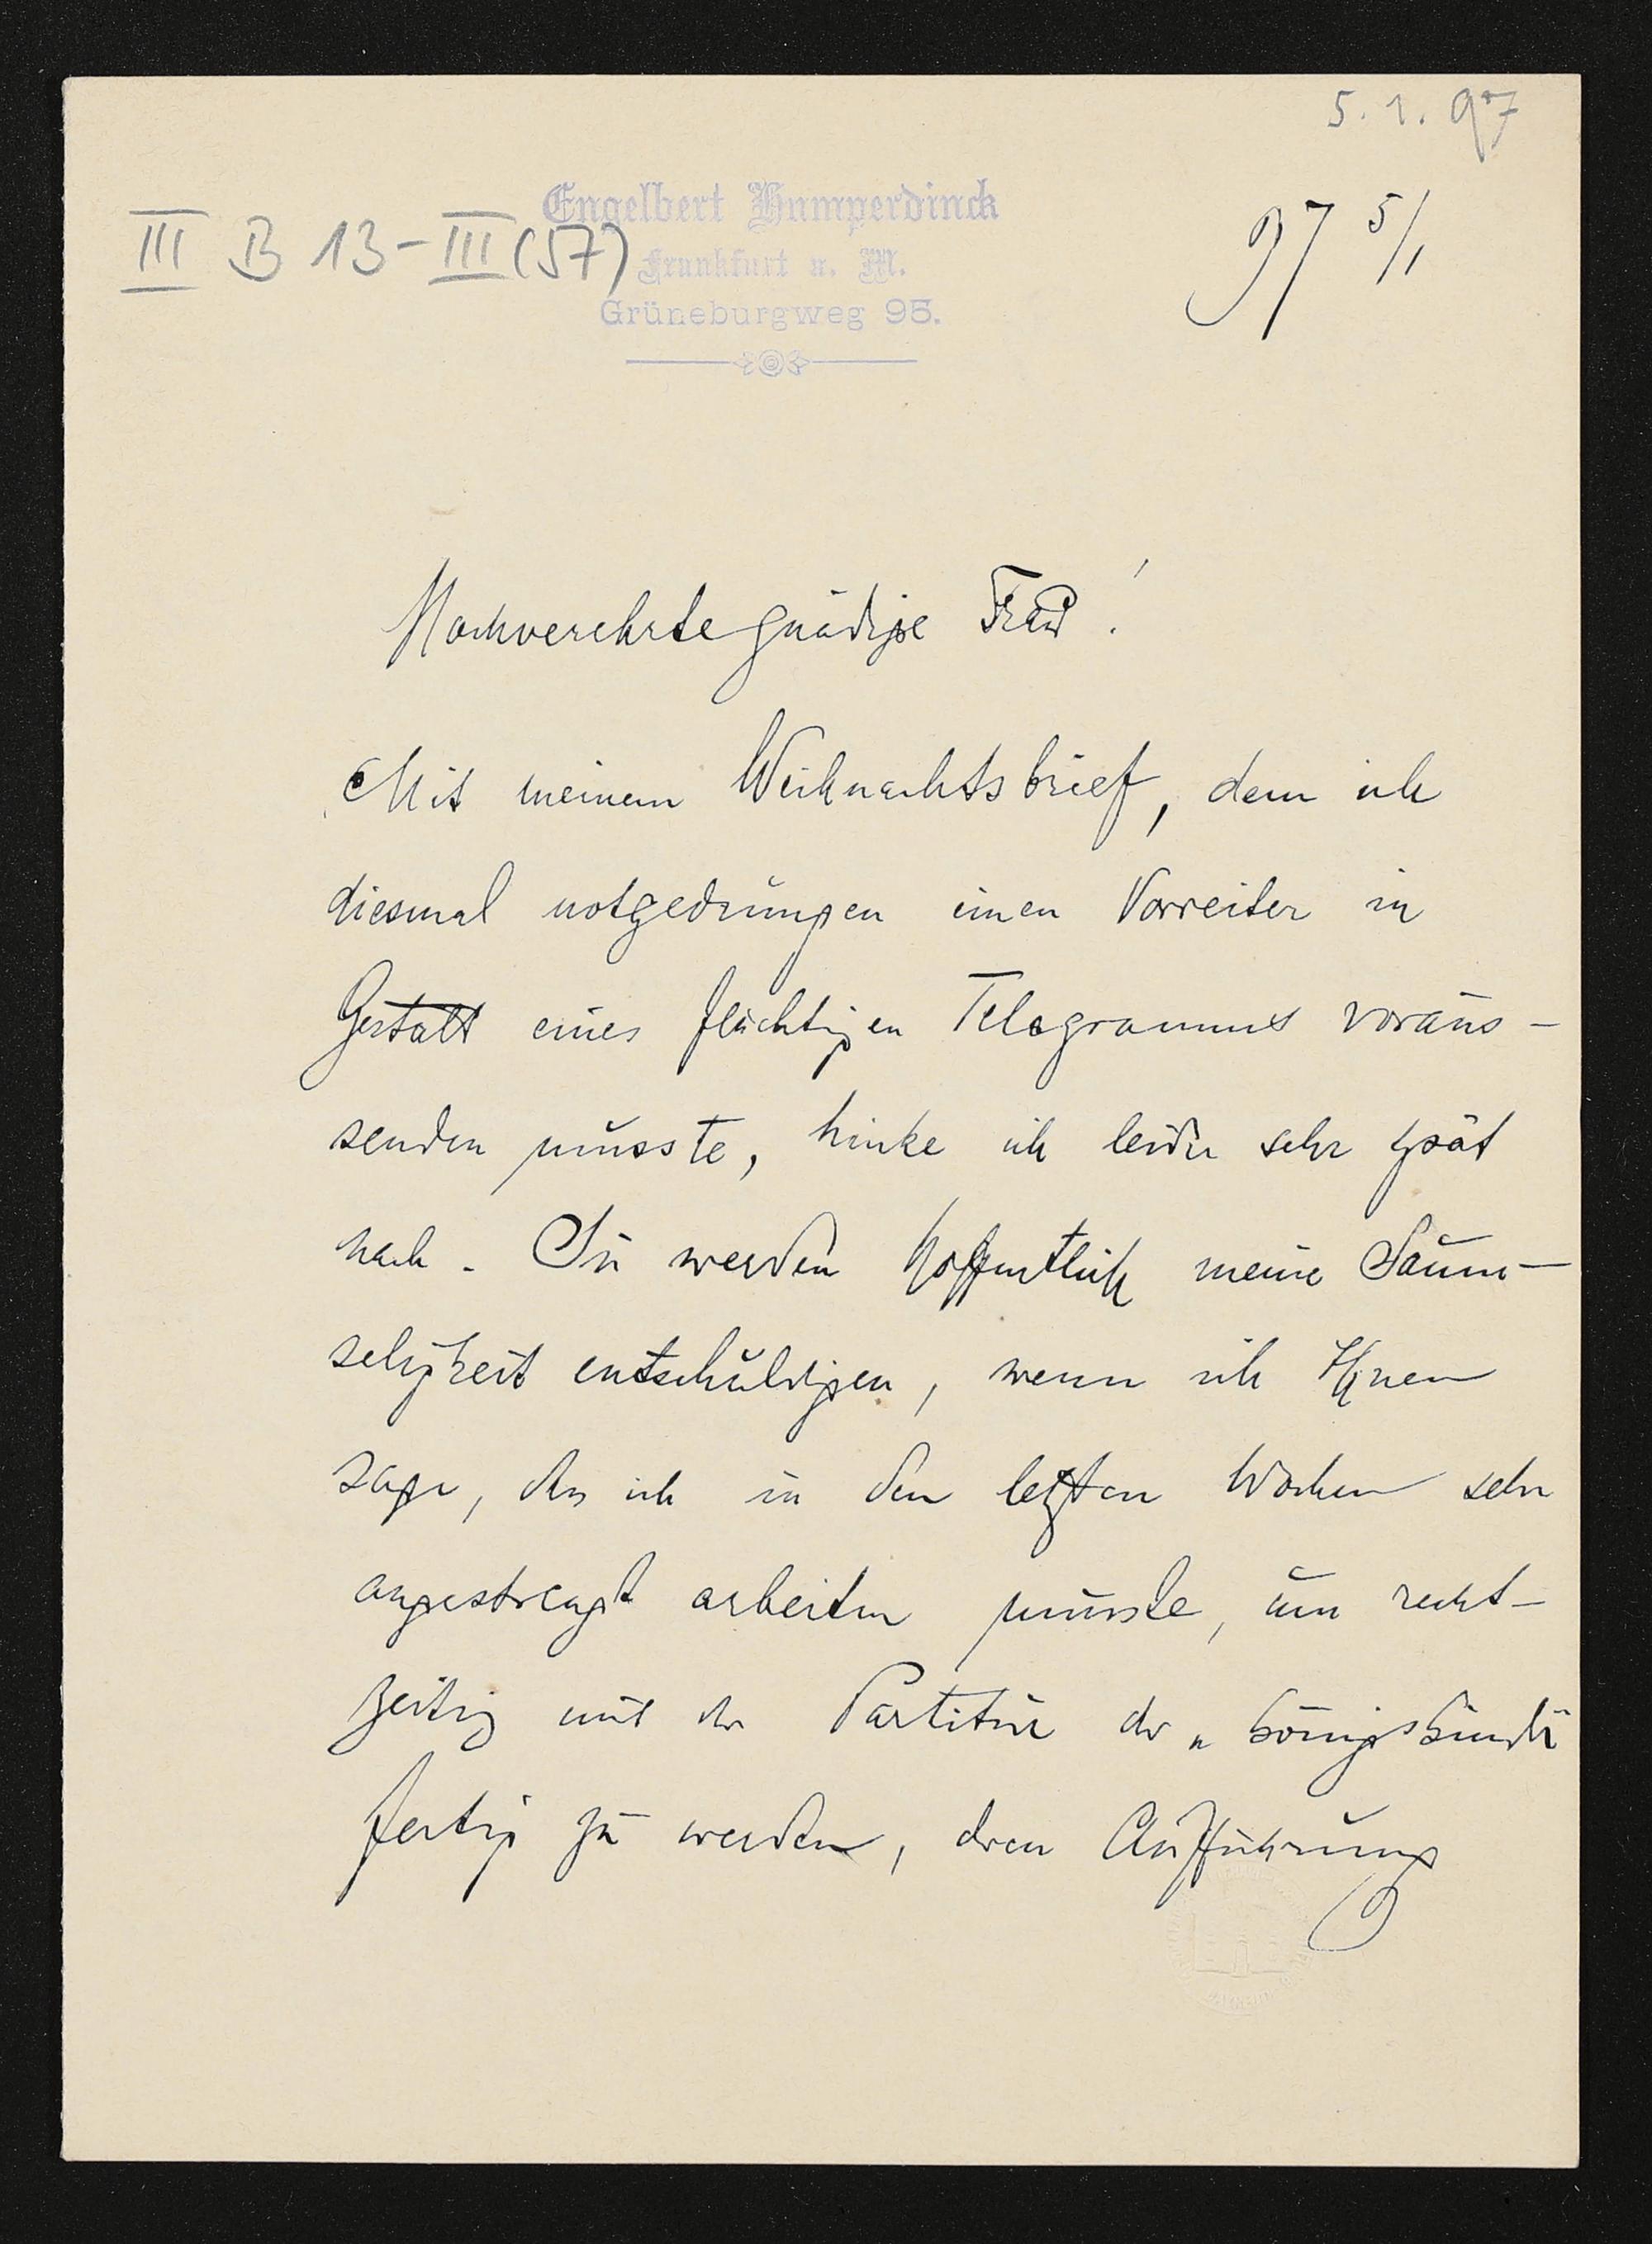 5. 1. 97
Engelbert Humperdinck
III B 13-III (57)
Frankfurt a. M.
Grüneburgweg 95.
97 5/1
Hochverehrte gnädige Frau!
Mit meinem Weihnachtsbrief, dem ich
diesmal notgedrungen einen Vorreiter in
Gestalt eines flüchtigen Telegramms voraus-
senden musste, hinke ich leider sehr spät
nach. Sie werden hoffentlich meine Saum-
seligkeit entschuldigen, wenn ich Ihnen
sage, dass ich in den letzten Wochen sehr
angestrengt arbeiten musste, um recht-
zeitig mit der Partitur der „Königskinder"
fertig zu werden, deren Aufführung